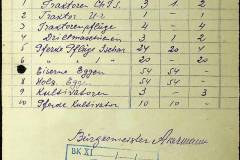 1 Traktoren Ch.T.S. 3 1 2
2 Traktor U-2 1 - 1
3 Traktorenpflüge 3 - 3
4 Drillmaschienen 3 2 1
5 Pferde Pflüge 24 20 4
6 " " 20 - 20
7 Eiserne Eggen 54 54 -
8 Holz Eggen 54 54 -
9 Kultivatoren 3 - 3
10 Pferde Kultivator 10 10 -
Bürgermeister
BK XI